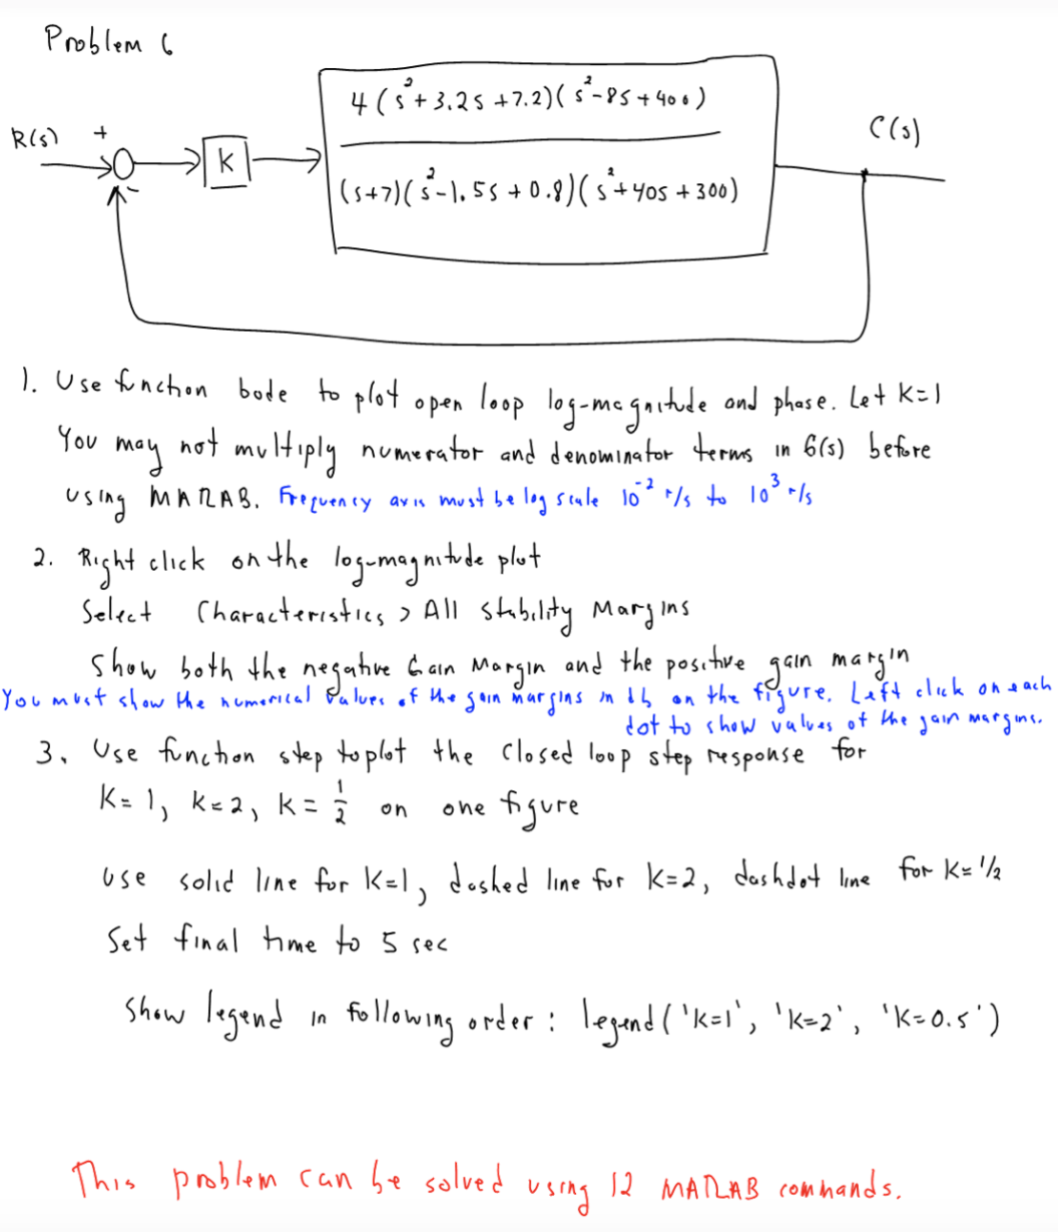 Problem 6
4(s²+3.2s+7.2)(s²-8s+400)
R(s) + K C(s)
(s+7)(s²-1.5s+0.8)(s²+40s+300)
-
1. Use function bode to plot open loop log-magnitude and phase. Let K=1
You may not multiply numerator and denominator terms in G(s) before
using MATLAB. Frequency axis must be log scale 10⁻² r/s to 10³ r/s
2. Right click on the log-magnitude plot
Select Characteristics > All Stability Margins
Show both the negative Gain Margin and the positive gain margin
You must show the numerical values of the gain margins in db on the figure. Left click on each
dot to show values of the gain margins.
3. Use function step to plot the closed loop step response for
K=1, K=2, K=1/2 on one figure
use solid line for K=1, dashed line for K=2, dashdot line for K=1/2
Set final time to 5 sec
Show legend in following order: legend('K=1', 'K=2', 'K=0.5')
This problem can be solved using 12 MATLAB commands.